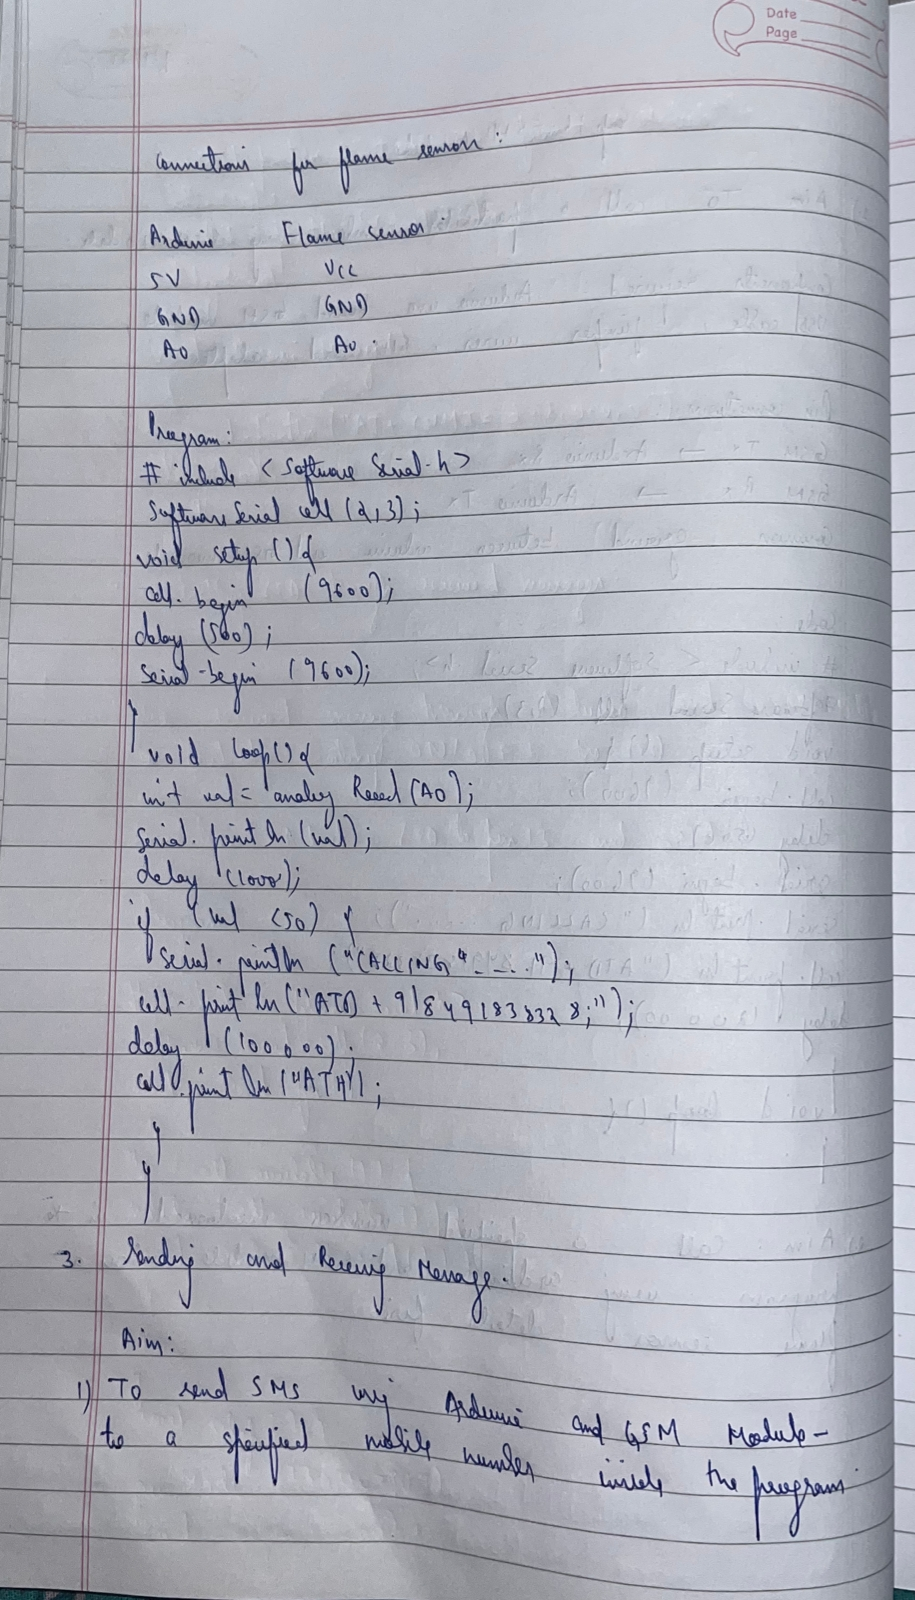 Date
Page
Connections for flame sensor:
Arduino Flame sensor
5V VCC
GND GND
A0 A0.
Program:
# include <Software Serial.h>
Software Serial cell (2,3);
void setup () {
cell. begin (9600);
delay (500);
serial.begin (9600);
}
void loop() {
int val = analog Read (A0);
serial. print ln (val);
delay (1000);
if (val <50) {
serial. println ("CALLING"....");
cell. print ln ("ATD + 918491838328;");
delay (100000);
cell.print ln ("ATH");
}
}
3. Sending and Receving Message.
Aim:
1) To send SMS using Arduino and GSM Module -
to a specified mobile number inside the program